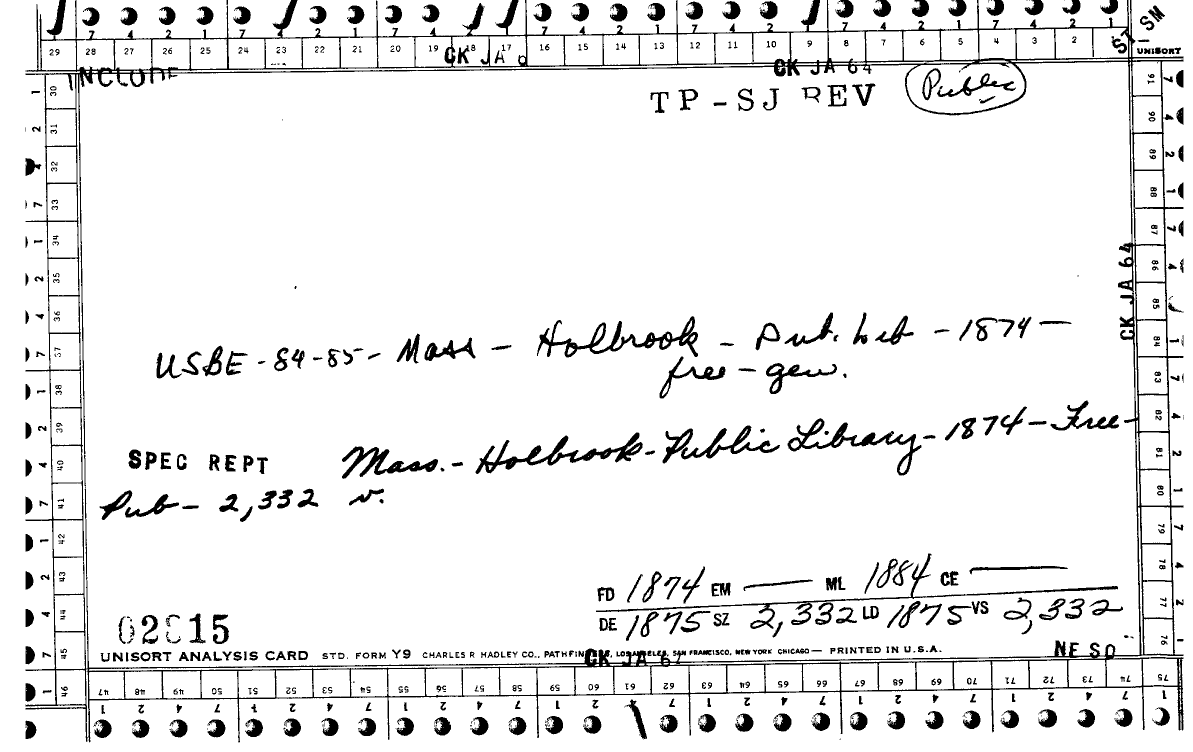 7 4 2 1 7 4 2 1 7 4 2 1 7 4 2 1 7 4 2 1 7 4 2 1
29 28 27 26 25 24 23 22 21 20 19 18 17 16 15 14 13 12 11 10 9 8 7 6 5 4 3 2 1 UNISORT
ST SM
CK JA
CK JA 64
INCLUDE
TP-SJ REV Public
30 31 32 33 34 35 36 37 38 39 40 41 42 43 44 45 46
91 90 89 88 87 86 85 84 83 82 81 80 79 78 77 76
CK JA 64
USBE - 84-85 - Mass - Holbrook - Pub. Lib - 1874 -
free - gen.
SPEC REPT Mass. - Holbrook - Public Library - 1874 - Free -
Pub - 2,332 v.
FD 1874 EM — ML 1884 CE —
DE 1875 SZ 2,332 LD 1875 VS 2,332
02815
UNISORT ANALYSIS CARD STD. FORM Y9 CHARLES R HADLEY CO., PATHFINDERS, LOS ANGELES, SAN FRANCISCO, NEW YORK CHICAGO — PRINTED IN U.S.A.
CK JA 64
NE SO
47 48 49 50 51 52 53 54 55 56 57 58 59 60 61 62 63 64 65 66 67 68 69 70 71 72 73 74 75